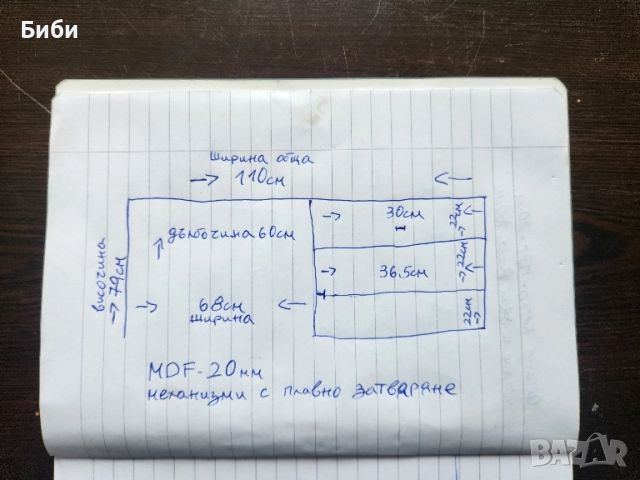 Биби
ширина обща
→ 110см ←
височина
→ 79см
дълбочина 60см
→ 30см
22см
→ 36.5см
22см
→ 68см ←
ширина
22см
MDF-20мм
механизми с плавно затваряне
BAZAR